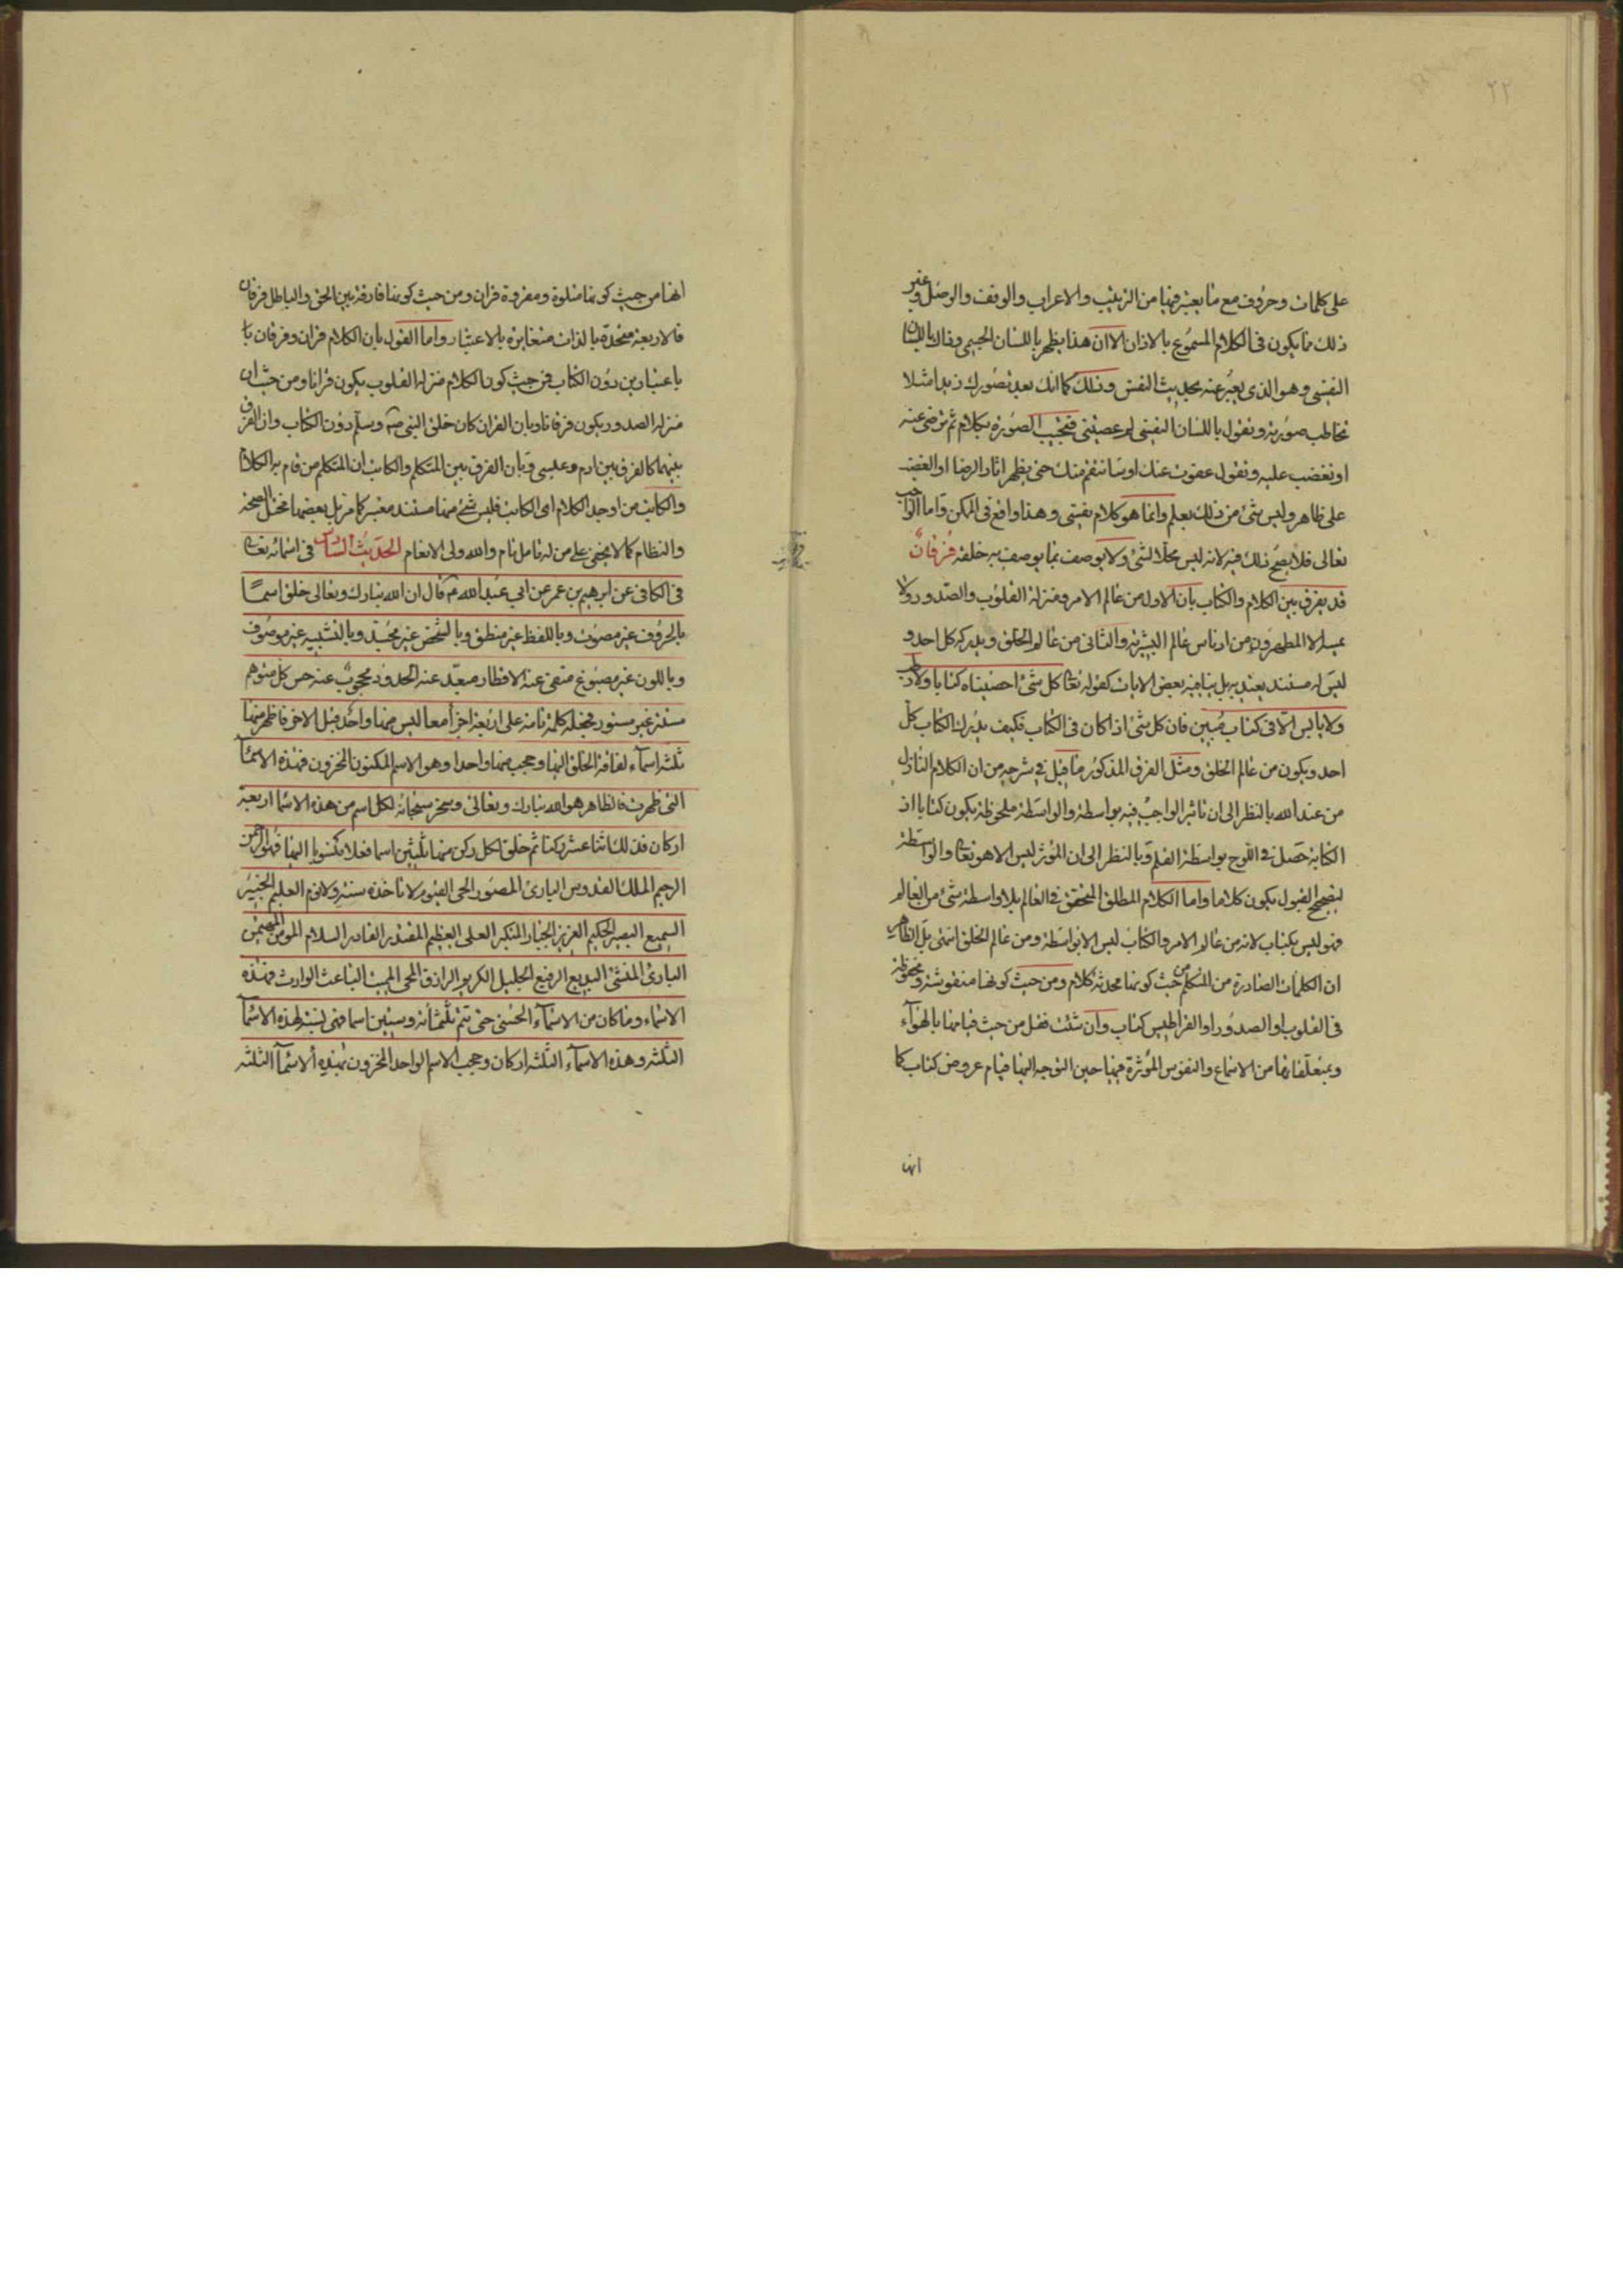 ٢٢
على كلمات وحروف مع ما يعتبر فيها من الترتيب والاعراب والوقف والوصل وغير
ذلك مما يكون فى الكلام المسموع بالاذان الا ان هذا يظهر باللسان الجسمى وذاك باللسان
النفسى وهو الذى يعبر عنه بحديث النفس وذلك كما انك بعد تصورك زيدا مثلا
تخاطب صورته وتقول باللسان النفسى لم عصيتنى فتجيب الصورة بكلام ثم ترضى عنه
او تغضب عليه وتقول عفوت عنك او سانتقم منك حتى يظهر اثار الرضا او الغضب
على ظاهر وليس شئ من ذلك بعلم وانما هو كلام نفسى وهذا واقع فى الممكن واما الواجب
تعالى فلا يصح ذلك فيه لانه ليس محلا لشئ ولا يوصف بما يوصف به خلقه فرقان
قد يفرق بين الكلام والكتاب بان الاول من عالم الامر ومنزله القلوب والصدور ولا
يمسه الا المطهرون من ادناس عالم البشرية والثانى من عالم الخلق ويدركه كل احد و
ليس له مستند يعتد به بل ينافيه بعض الايات كقوله تعالى كل شئ احصيناه كتابا ولا رطب
ولا يابس الا فى كتاب مبين فان كل شئ اذا كان فى الكتاب فكيف يدرك الكتاب كل
احد ويكون من عالم الخلق ومثل الفرق المذكور ما قيل فى شرحه من ان الكلام النازل
من عند الله بالنظر الى ان تاثير الواجب فيه بواسطة والواسطة ملحوظة يكون كتابا اذ
الكتابة حصل فى اللوح بواسطة القلم وبالنظر الى ان المؤثر ليس الا هو تعالى والواسطة
لتصحيح القبول يكون كلاما واما الكلام المطلق المتحقق فى العالم بلا واسطة شئ من العالم
فهو ليس بكتاب لانه من عالم الامر والكتاب ليس الا بواسطة ومن عالم الخلق انتهى بل الظاهر
ان الكلمات الصادرة من المتكلم من حيث كونها محدثة كلام ومن حيث كونها منقوشة ومحفوظة
فى القلوب او الصدور او القراطيس كتاب وان شئت فقل من حيث قيامها بالهواء
وبمتعلقاتها من الاسماع والنفوس المؤثرة فيها حين التوجه اليها قيام عروض كتاب كما
انها
انها من حيث كونها متلوة ومقروة قران ومن حيث كونها فارقة بين الحق والباطل فرقان
فالاربعة متحدة بالذات متغايرة بالاعتبار واما القول بان الكلام قران وفرقان با
باعتبارين دون الكتاب فمن حيث كون الكلام منزله القلوب يكون قرانا ومن حيث ان
منزله الصدور يكون فرقانا وبان القران كان خلق النبى صه وسلم دون الكتاب وان الفرق
بينهما كالفرق بين ادم وعيسى وبان الفرق بين المتكلم والكاتب ان المتكلم من قام به الكلام
والكاتب من اوجد الكلام اى الكاتب فليس شئ منها مستند معتبر كما مر بل بعضها مختل الصحة
والنظام كما لا يخفى على من له تامل تام والله ولى الانعام الحديث الثالث فى اسمائه تعالى
فى الكافى عن ابرهيم بن عمر عن ابى عبد الله ع قال ان الله تبارك وتعالى خلق اسما
بالحروف غير مصوت وباللفظ غير منطق وبالشخص غير مجسد وبالتشبيه غير موصوف
وباللون غير مصبوغ منفى عنه الاقطار مبعد عنه الحدود محجوب عنه حس كل متوهم
مستتر غير مستور فجعله كلمة تامة على اربعة اجزأ معا ليس منها واحد قبل الاخر فاظهر منها
ثلثة اسماء لفاقة الخلق اليها وحجب منها واحدا وهو الاسم المكنون المخزون فهذه الاسمأ
التى ظهرت فالظاهر هو الله تبارك وتعالى وسخر سبحانه لكل اسم من هذه الاسما اربعة
اركان فذلك اثنا عشر ركنا ثم خلق لكل ركن منها ثلثين اسما فعلا منسوبا اليها فهو الرحمن
الرحيم الملك القدوس البارئ المصور الحى القيوم لا تاخذه سنة ولا نوم العليم الخبير
السميع البصير الحكيم العزيز الجبار المتكبر العلى العظيم المقتدر القادر السلام المؤمن المهيمن
البارئ المنشئ البديع الرفيع الجليل الكريم الرازق المحى المميت الباعث الوارث فهذه
الاسماء وما كان من الاسماء الحسنى حتى تتم ثلثمائة وستين اسما فهى نسبة لهذه الاسمآ
الثلثة وهذه الاسماء الثلثة اركان وحجب الاسم الواحد المخزون بهذه الاسمآ الثلثة